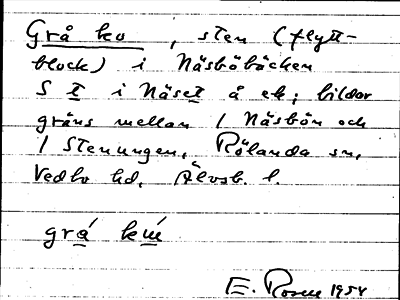 Grå ko, sten (flytt-
block) i Näsböbäcken
S I i Näset å ek; bildar
gräns mellan 1 Näsbön och
1 Stenungen, Rölanda sn,
Vedbo hd, Älvsb. l.
grá kú
E. Rosen 1954